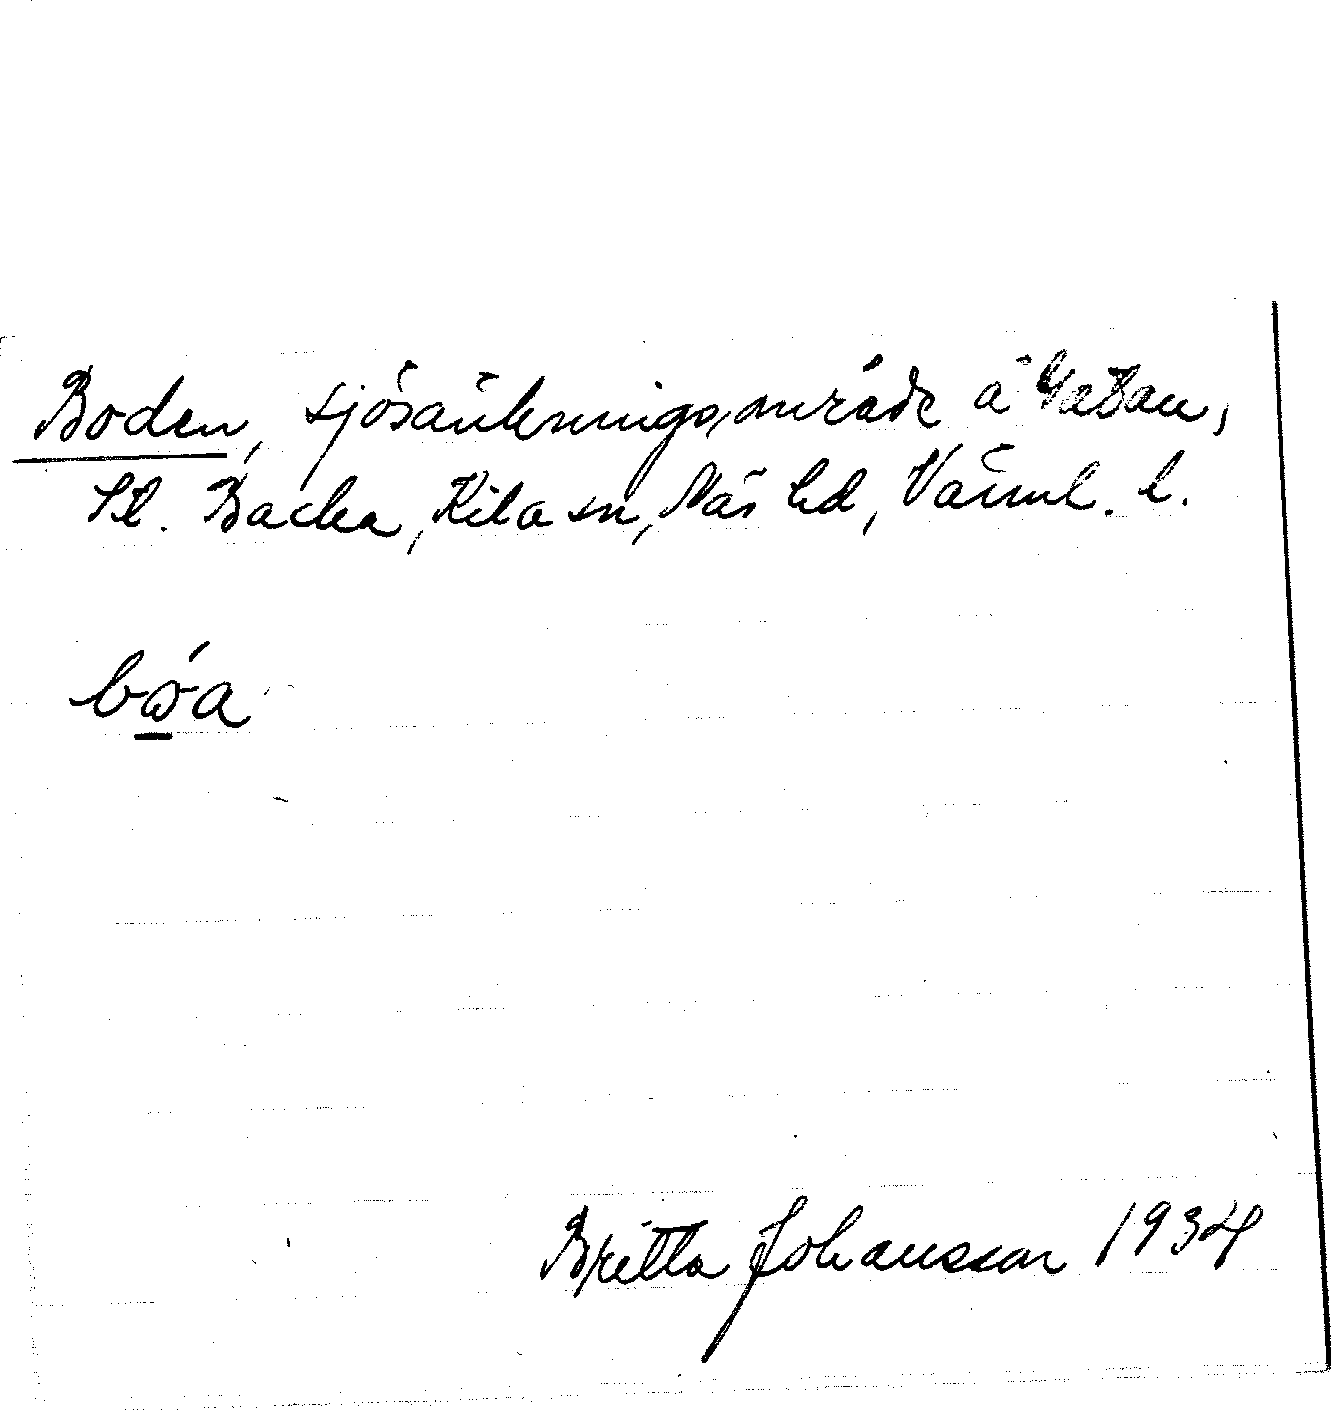 Boden, sjösänkningsområde å Gatan,
St. Backa, Kila sn, Näs hd, Värml. l.
bώa
Britta Johansson 1934